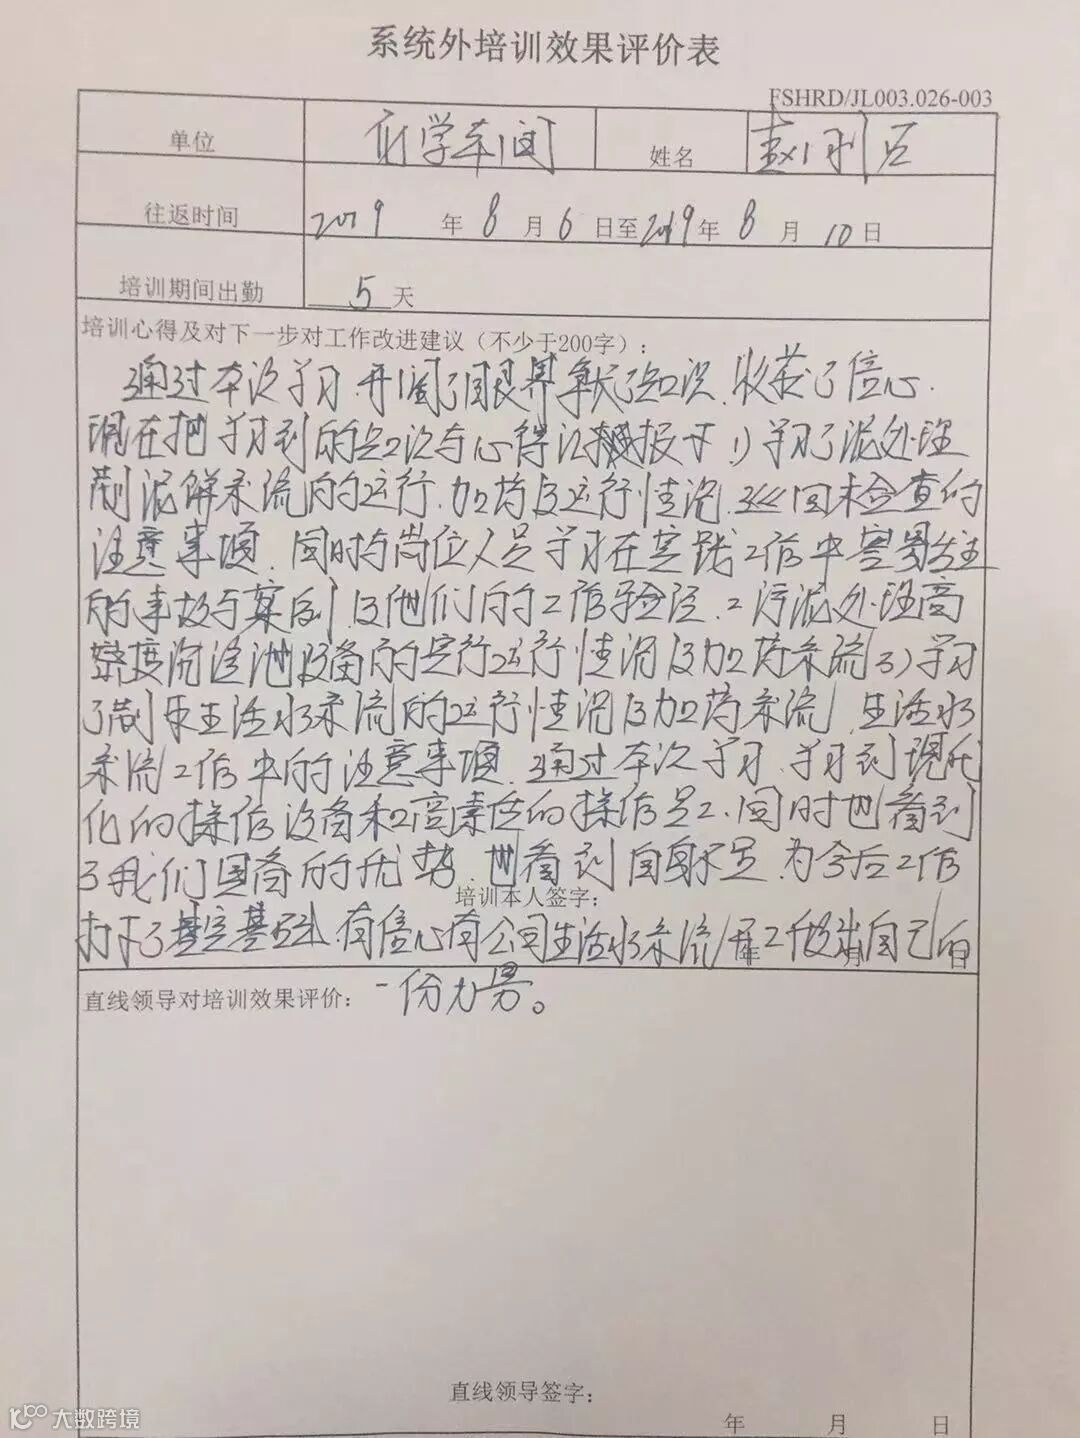 系统外培训效果评价表
FSHRD/JL003.026-003
单位 化学车间 姓名 赵利
往返时间 2019年8月6日至2019年8月10日
培训期间出勤 5天
培训心得及对下一步对工作改进建议（不少于200字）：
通过本次学习,开阔了眼界,了知识,收获了信心.
现在把学习到的知识与心得报下 1)学习了泥处理
制泥解系流的运行.加药及运行情况.检查的
注意事项.同时与岗位人员学习在实践工作中容易发生
的事故与案例及他们的工作经验.2污泥处理高
密度沉淀池设备的运行情况及加药系流3)学习
了制生活水系流的运行情况及加药系流,生活水
系流工作中的注意事项.通过本次学习.学习到现代
化的操作设备和高素质的操作员工.同时也看到
了我们的优势.也看到自身不足.为今后工作
培训本人签字：
打下了基础.有信心有公司生活水系流工做出自己的
年 月 日
直线领导对培训效果评价：一份力量。
直线领导签字：
年 月 日
大数跨境